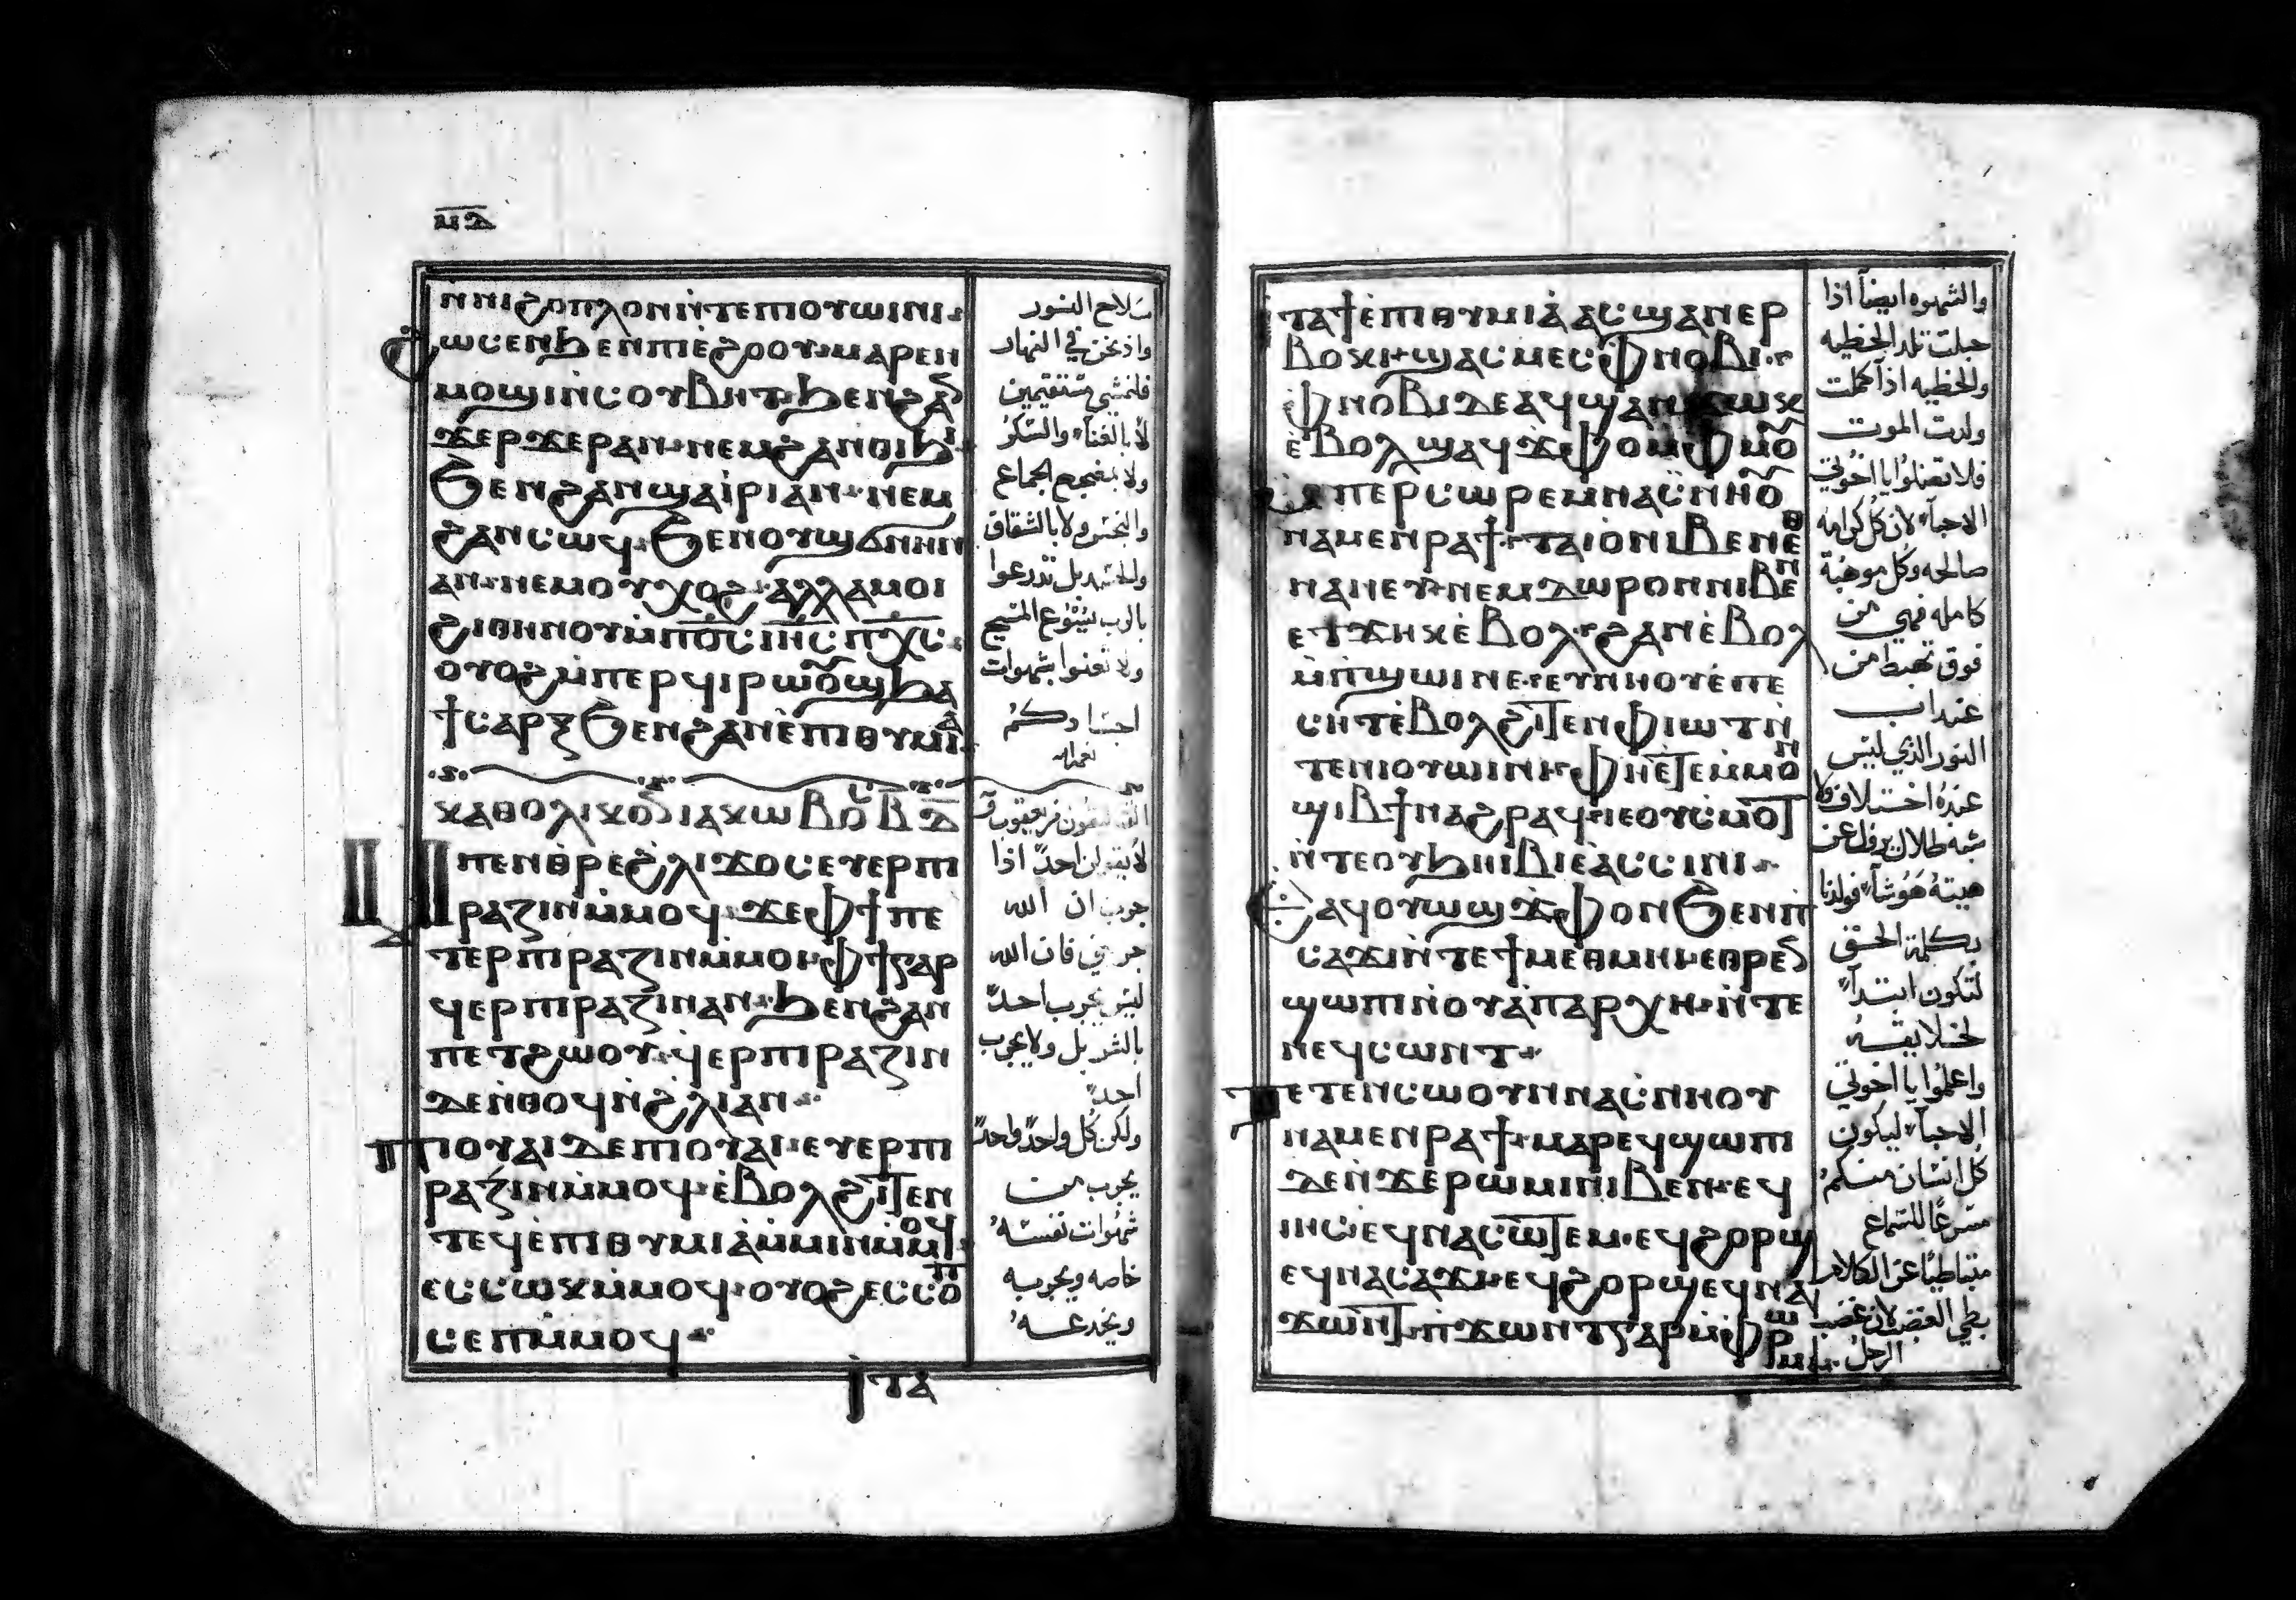 ⲙⲇ
ⲛⲛⲓϩⲟⲡⲗⲟⲛ ⲛ̀ⲧⲉ ⲡⲓⲟⲩⲱⲓⲛⲓ
ϩⲱⲥ ⲉⲛϧⲉⲛ ⲡⲓⲉ̀ϩⲟⲟⲩ ⲙⲁⲣⲉⲛ
ⲙⲟϣⲓ ⲛ̀ⲥⲟⲩⲃⲏⲧ ϧⲉⲛ ϩⲁ
ϫⲉⲣϫⲉⲣ ⲁⲛ ⲛⲉⲙ ϩⲁⲛⲑⲓϧⲓ
ϧⲉⲛ ϩⲁⲛϣⲁⲓ̀ⲣⲓ ⲁⲛ ⲛⲉⲙ
ϩⲁⲛⲥⲱϥ ϧⲉⲛ ⲟⲩϣϭⲛⲏⲛ
ⲁⲛ ⲛⲉⲙ ⲟⲩⲭⲟϩ ⲁⲗⲗⲁ ⲙⲟⲓ
ϩⲓⲑⲏⲛⲟⲩ ⲙ̀ⲡⲟ̅ⲥ̅ ⲓⲏ̅ⲥ̅ ⲡⲭ̅ⲥ̅
ⲟⲩⲟϩ ⲙ̀ⲡⲉⲣϥⲓⲣⲱⲟⲩϣ ϧⲁ
ϯⲥⲁⲣⲝ ϧⲉⲛ ϩⲁⲛⲉ̀ⲡⲓⲑⲩⲙⲓⲁ
ⲕⲁⲑⲟⲗⲓⲕⲟⲛ ⲓⲁⲕⲱⲃⲟⲥ ⲃ ⲇ
ⲙⲡⲉⲛⲑⲣⲉ ϩⲗⲓ ϫⲟⲥ ⲉⲩⲉⲣⲡⲓ
ⲣⲁⲍⲓⲛ ⲙ̀ⲙⲟϥ ϫⲉ ⲫϯ ⲡⲉ
ⲧⲉⲣⲡⲓⲣⲁⲍⲓⲛ ⲙ̀ⲙⲟⲓ ⲫϯ ⲅⲁⲣ
ϥⲉⲣⲡⲓⲣⲁⲍⲓⲛ ⲁⲛ ϧⲉⲛ ϩⲁⲛ
ⲡⲉⲧϩⲱⲟⲩ ϥⲉⲣⲡⲓⲣⲁⲍⲓⲛ
ⲇⲉ ⲛ̀ⲑⲟϥ ⲛ̀ϩⲗⲓ ⲁⲛ
ⲡⲓⲟⲩⲁⲓ ⲇⲉ ⲡⲓⲟⲩⲁⲓ ⲉⲩⲉⲣⲡⲓ
ⲣⲁⲍⲓⲛ ⲙ̀ⲙⲟϥ ⲉ̀ⲃⲟⲗ ϩⲓⲧⲉⲛ
ⲧⲉϥⲉ̀ⲡⲓⲑⲩⲙⲓⲁ ⲙ̀ⲙⲓⲛ ⲙ̀ⲙⲟϥ
ⲉⲥⲥⲱⲕ ⲙ̀ⲙⲟϥ ⲟⲩⲟϩ ⲉⲥⲥⲟ
ⲥⲉⲡ ⲙ̀ⲙⲟϥ
ⲓⲧⲁ
سلاح النور
واذ نحن في النهار
فلنمشي مستقيمين
لا بالغناء والسكر
ولا بمضجع الجماع
والنجس ولا بالشقاق
والحسد بل تدرعوا
بالرب يسوع المسيح
ولا تعتنوا بشهوات
اجسادكم
لا يقولن احد اذا
جرب ان الله
جربني فان الله
ليس يجرب احد
بالشر بل ولا يجرب
احد
ولكن كل واحد واحد
يجرب من
شهوات نفسه
خاصه ويجربه
ويخدعه
ⲓⲧⲁ ϯⲉ̀ⲡⲓⲑⲩⲙⲓⲁ ⲁⲥϣⲁⲛⲉⲣ
ⲃⲟⲕⲓ ϣⲁⲥⲙⲉⲥ ⲫⲛⲟⲃⲓ
ⲫⲛⲟⲃⲓ ⲇⲉ ⲁϥϣⲁⲛϫⲱⲕ
ⲉⲃⲟⲗ ϣⲁϥϫⲫⲟ ⲙ̀ⲫⲙⲟⲩ
ⲙⲡⲉⲣⲥⲱⲣⲉⲙ ⲛⲁⲥ̀ⲛⲏⲟⲩ
ⲛⲁⲙⲉⲛⲣⲁϯ ⲧⲁⲓⲟ ⲛⲓⲃⲉⲛ ⲉⲑ
ⲛⲁⲛⲉⲩ ⲛⲉⲙ ⲇⲱⲣⲟⲛ ⲛⲓⲃⲉⲛ
ⲉⲧϫⲏⲕ ⲉ̀ⲃⲟⲗ ϩⲁⲛⲉ̀ⲃⲟⲗ
ⲙ̀ⲡϣⲱⲓ ⲛⲉ ⲉⲩⲛⲏⲟⲩ ⲉ̀ⲡⲉ
ⲥⲏⲧ ⲉ̀ⲃⲟⲗ ϩⲓⲧⲉⲛ ⲫⲓⲱⲧ ⲛ̀
ⲧⲉ ⲛⲓⲟⲩⲱⲓⲛⲓ ⲫⲏⲉ̀ⲧⲉ ⲙ̀ⲙⲟⲛ
ϣⲓⲃϯ ⲛⲁϩⲣⲁϥ ⲓⲉ ⲟⲩⲥ̀ⲙⲟⲧ
ⲛ̀ⲧⲉ ⲟⲩϧⲏⲓⲃⲓ ⲉⲁ̀ⲥⲥⲓⲛⲓ
ⲉⲁϥⲟⲩⲱϣ ϫⲫⲟⲛ ϧⲉⲛ ⲡ
ⲥⲁϫⲓ ⲛ̀ⲧⲉ ϯⲙⲉⲑⲙⲏⲓ ⲉⲑⲣⲉⲛ
ϣⲱⲡⲓ ⲛ̀ⲟⲩⲁ̀ⲡⲁⲣⲭⲏ ⲛ̀ⲧⲉ
ⲛⲉϥⲥⲱⲛⲧ
ⲧⲉⲧⲉⲛⲥⲱⲟⲩⲛ ⲛⲁⲥ̀ⲛⲏⲟⲩ
ⲛⲁⲙⲉⲛⲣⲁϯ ⲙⲁⲣⲉϥϣⲱⲡⲓ
ⲇⲉ ⲛ̀ϫⲉ ⲣⲱⲙⲓ ⲛⲓⲃⲉⲛ ⲉϥ
ⲓⲏⲥ ⲉϥⲛⲁⲥⲱⲧⲉⲙ ⲉϥϩⲟⲣϣ
ⲉϥⲛⲁⲥⲁϫⲓ ⲉϥϩⲟⲣϣ ⲉϥⲛⲁ
ϫⲱⲛⲧ ⲡ̀ϫⲱⲛⲧ ⲅⲁⲣ ⲙ̀ⲫⲣⲱⲙⲓ
والشهوه ايضا اذا
حبلت تلد الخطيه
والخطيه اذا كملت
ولدت الموت
فلا تضلوا يا اخوتي
الاحباء لان كل كرامه
صالحه وكل موهبة
كامله فهي من
فوق تهبط من
عند اب
النور الذي ليس
عنده اختلاف ولا
شبه ظلال يزول عن
فولدنا
بكلمة الحق
لنكون ابتداء
لخلايقه
واعلموا يا اخوتي
الاحباء ليكون
كل انسان منكم
مسرعا للسماع
متباطيا عن الكلام
بطي الغضب لان غضب
الرجل